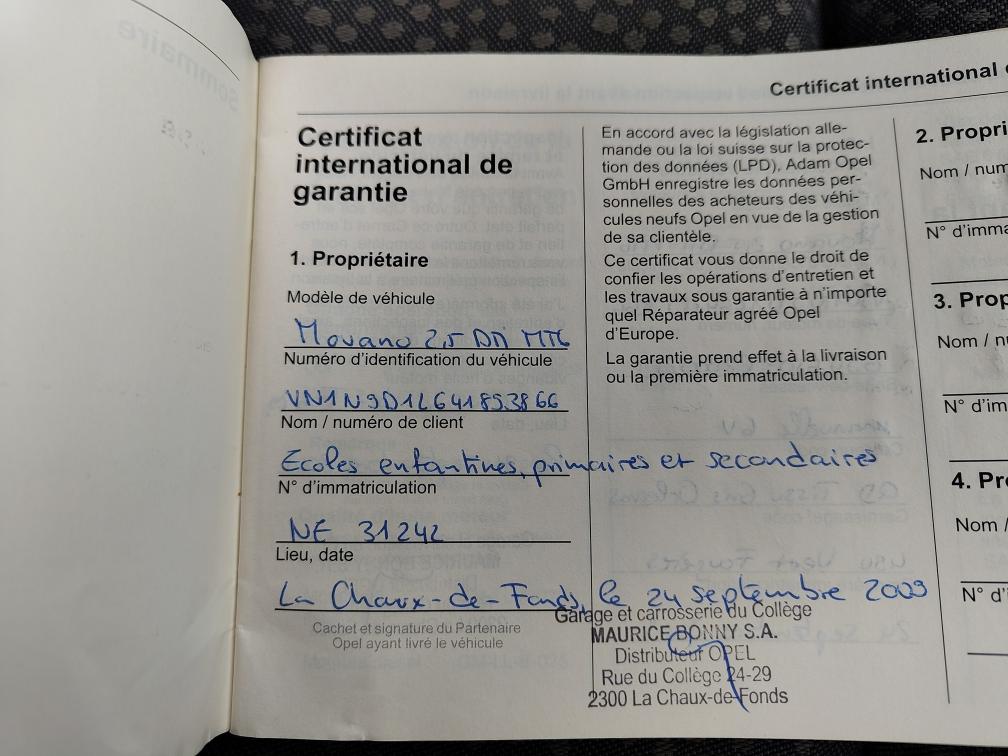 Certificat international
Certificat
international de
garantie
1. Propriétaire
Modèle de véhicule
Movano 2,5 DTI MT6
Numéro d'identification du véhicule
VN1N9D1L641853866
Nom / numéro de client
Ecoles enfantines, primaires et secondaires
N° d'immatriculation
NE 31242
Lieu, date
La Chaux-de-Fonds, le 24 septembre 2009
Cachet et signature du Partenaire
Opel ayant livré le véhicule
Garage et carrosserie du Collège
MAURICE BONNY S.A.
Distributeur OPEL
Rue du Collège 24-29
2300 La Chaux-de-Fonds
En accord avec la législation alle-
mande ou la loi suisse sur la protec-
tion des données (LPD), Adam Opel
GmbH enregistre les données per-
sonnelles des acheteurs des véhi-
cules neufs Opel en vue de la gestion
de sa clientèle.
Ce certificat vous donne le droit de
confier les opérations d'entretien et
les travaux sous garantie à n'importe
quel Réparateur agréé Opel
d'Europe.
La garantie prend effet à la livraison
ou la première immatriculation.
2. Propri
Nom / num
N° d'imma
3. Prop
Nom / n
N° d'im
4. Pr
Nom /
N° d'
Sommaire